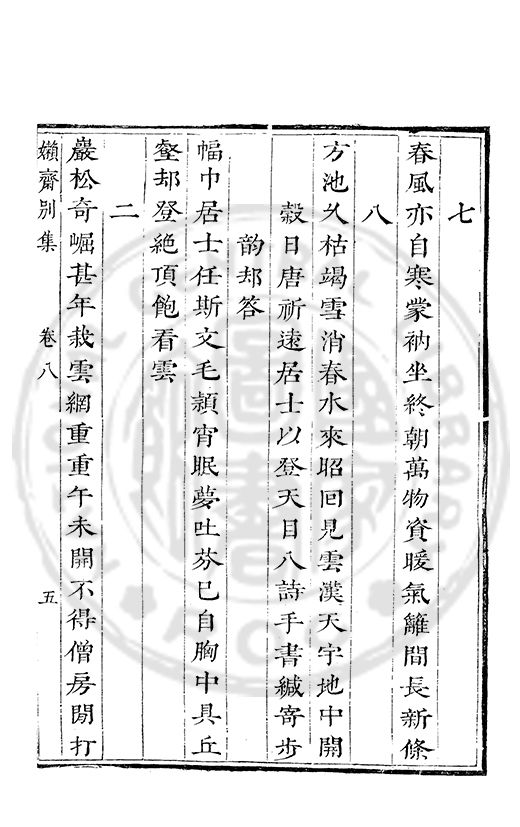 七
春風亦自寒蒙衲坐終朝萬物資暖氣籬間長新條
八
方池久枯竭雪消春水來昭回見雲漢天宇地中開
穀日唐祈遠居士以登天目八詩手書緘寄步
韵却答
幅巾居士任斯文毛頴宵眠夢吐芬巳自胸中具丘
壑却登絶頂飽看雲
二
巖松奇崛甚年栽雲網重重午未開不得僧房閒打
嬾齋別集
卷八
五